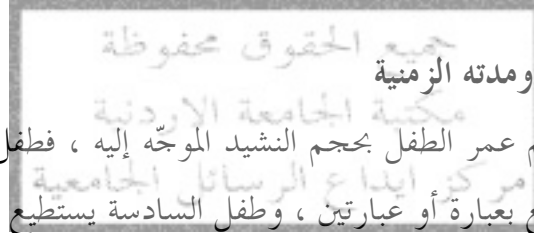 جميع الحقوق محفوظة
ومدته الزمنية
مكتبة الجامعة الاردنية
عمر الطفل بحجم النشيد الموجّه إليه ، فطفل
مركز ايداع الرسائل الجامعية
بعبارة أو عبارتين ، وطفل السادسة يستطيع